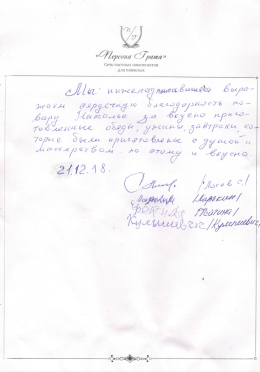 «Персона Грата»
Сеть элитных пансионатов
для пожилых
Мы нижеподписавшиеся выра-
жаем сердечную благодарность по-
вару Наталье за вкусно приго-
товленные обеды, ужины, завтраки, ко-
торые были приготовлены с душой и
мастерством. по этому и вкусно.
21.12.18.